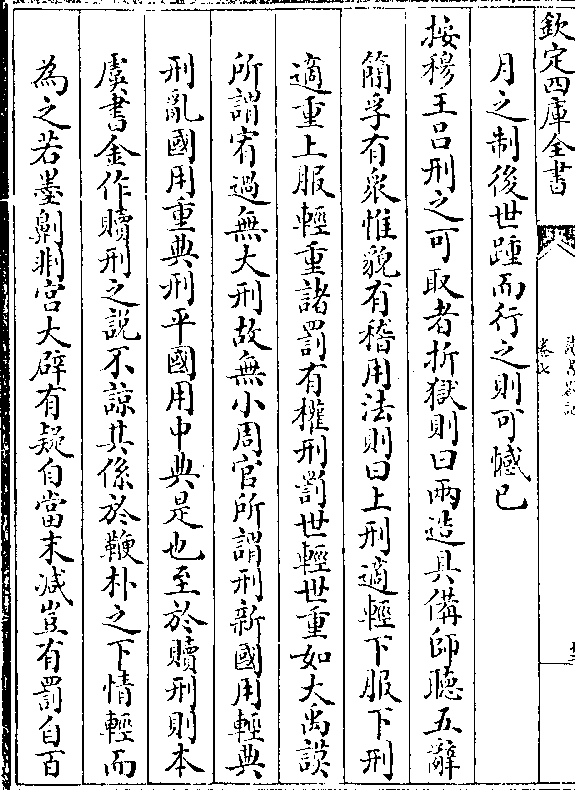 欽定四庫全書
卷七
月之制後世踵而行之則可憾已
按穆王呂刑之可取者折獄則曰兩造具備師聽五辭
簡孚有衆惟貌有稽用法則曰上刑適輕下服下刑
適重上服輕重諸罰有權刑罰世輕世重如大禹謨
所謂宥過無大刑故無小周官所謂刑新國用輕典
刑亂國用重典刑平國用中典是也至於贖刑則本
虞書金作贖刑之說不諒其係於鞭朴之下情輕而
為之若墨劓剕宮大辟有疑自當末減豈有罰自百